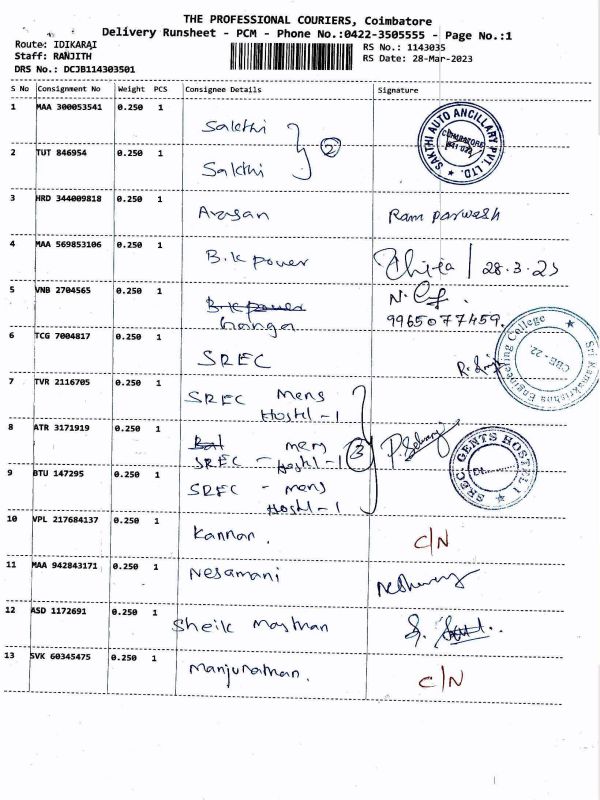 THE PROFESSIONAL COURIERS, Coimbatore
Delivery Runsheet - PCM - Phone No.:0422-3505555 - Page No.:1
Route: IDIKARAI
RS No.: 1143035
Staff: RANJITH
RS Date: 28-Mar-2023
DRS No.: DCJB114303501
S No Consignment No Weight PCS Consignee Details Signature
1 MAA 300053541 0.250 1 Sakthi
SAKTHI AUTO ANCILLARY PVT. LTD.
COIMBATORE
2 TUT 846954 0.250 1 Sakthi
2
3 HRD 344009818 0.250 1 Arasan Ram parwash
4 MAA 569853106 0.250 1 B.K power 28.3.23
5 VNB 2704565 0.250 1 B.K power
Ganga
9965077459.
6 TCG 7004817 0.250 1 SREC
Sri Ramakrishna Engineering College
CBE-22
7 TVR 2116705 0.250 1 SREC mens
Hostl-1
8 ATR 3171919 0.250 1 mens
SREC - Hostl-1
3
SREC GENTS HOSTEL 1
9 BTU 147295 0.250 1 SREC - mens
Hostl-1
10 VPL 217684137 0.250 1 Kannan. C/N
11 MAA 942843171 0.250 1 Nesamani
12 ASD 1172691 0.250 1 Sheik Masthan
13 SVK 60345475 0.250 1 Manjunathan. C/N